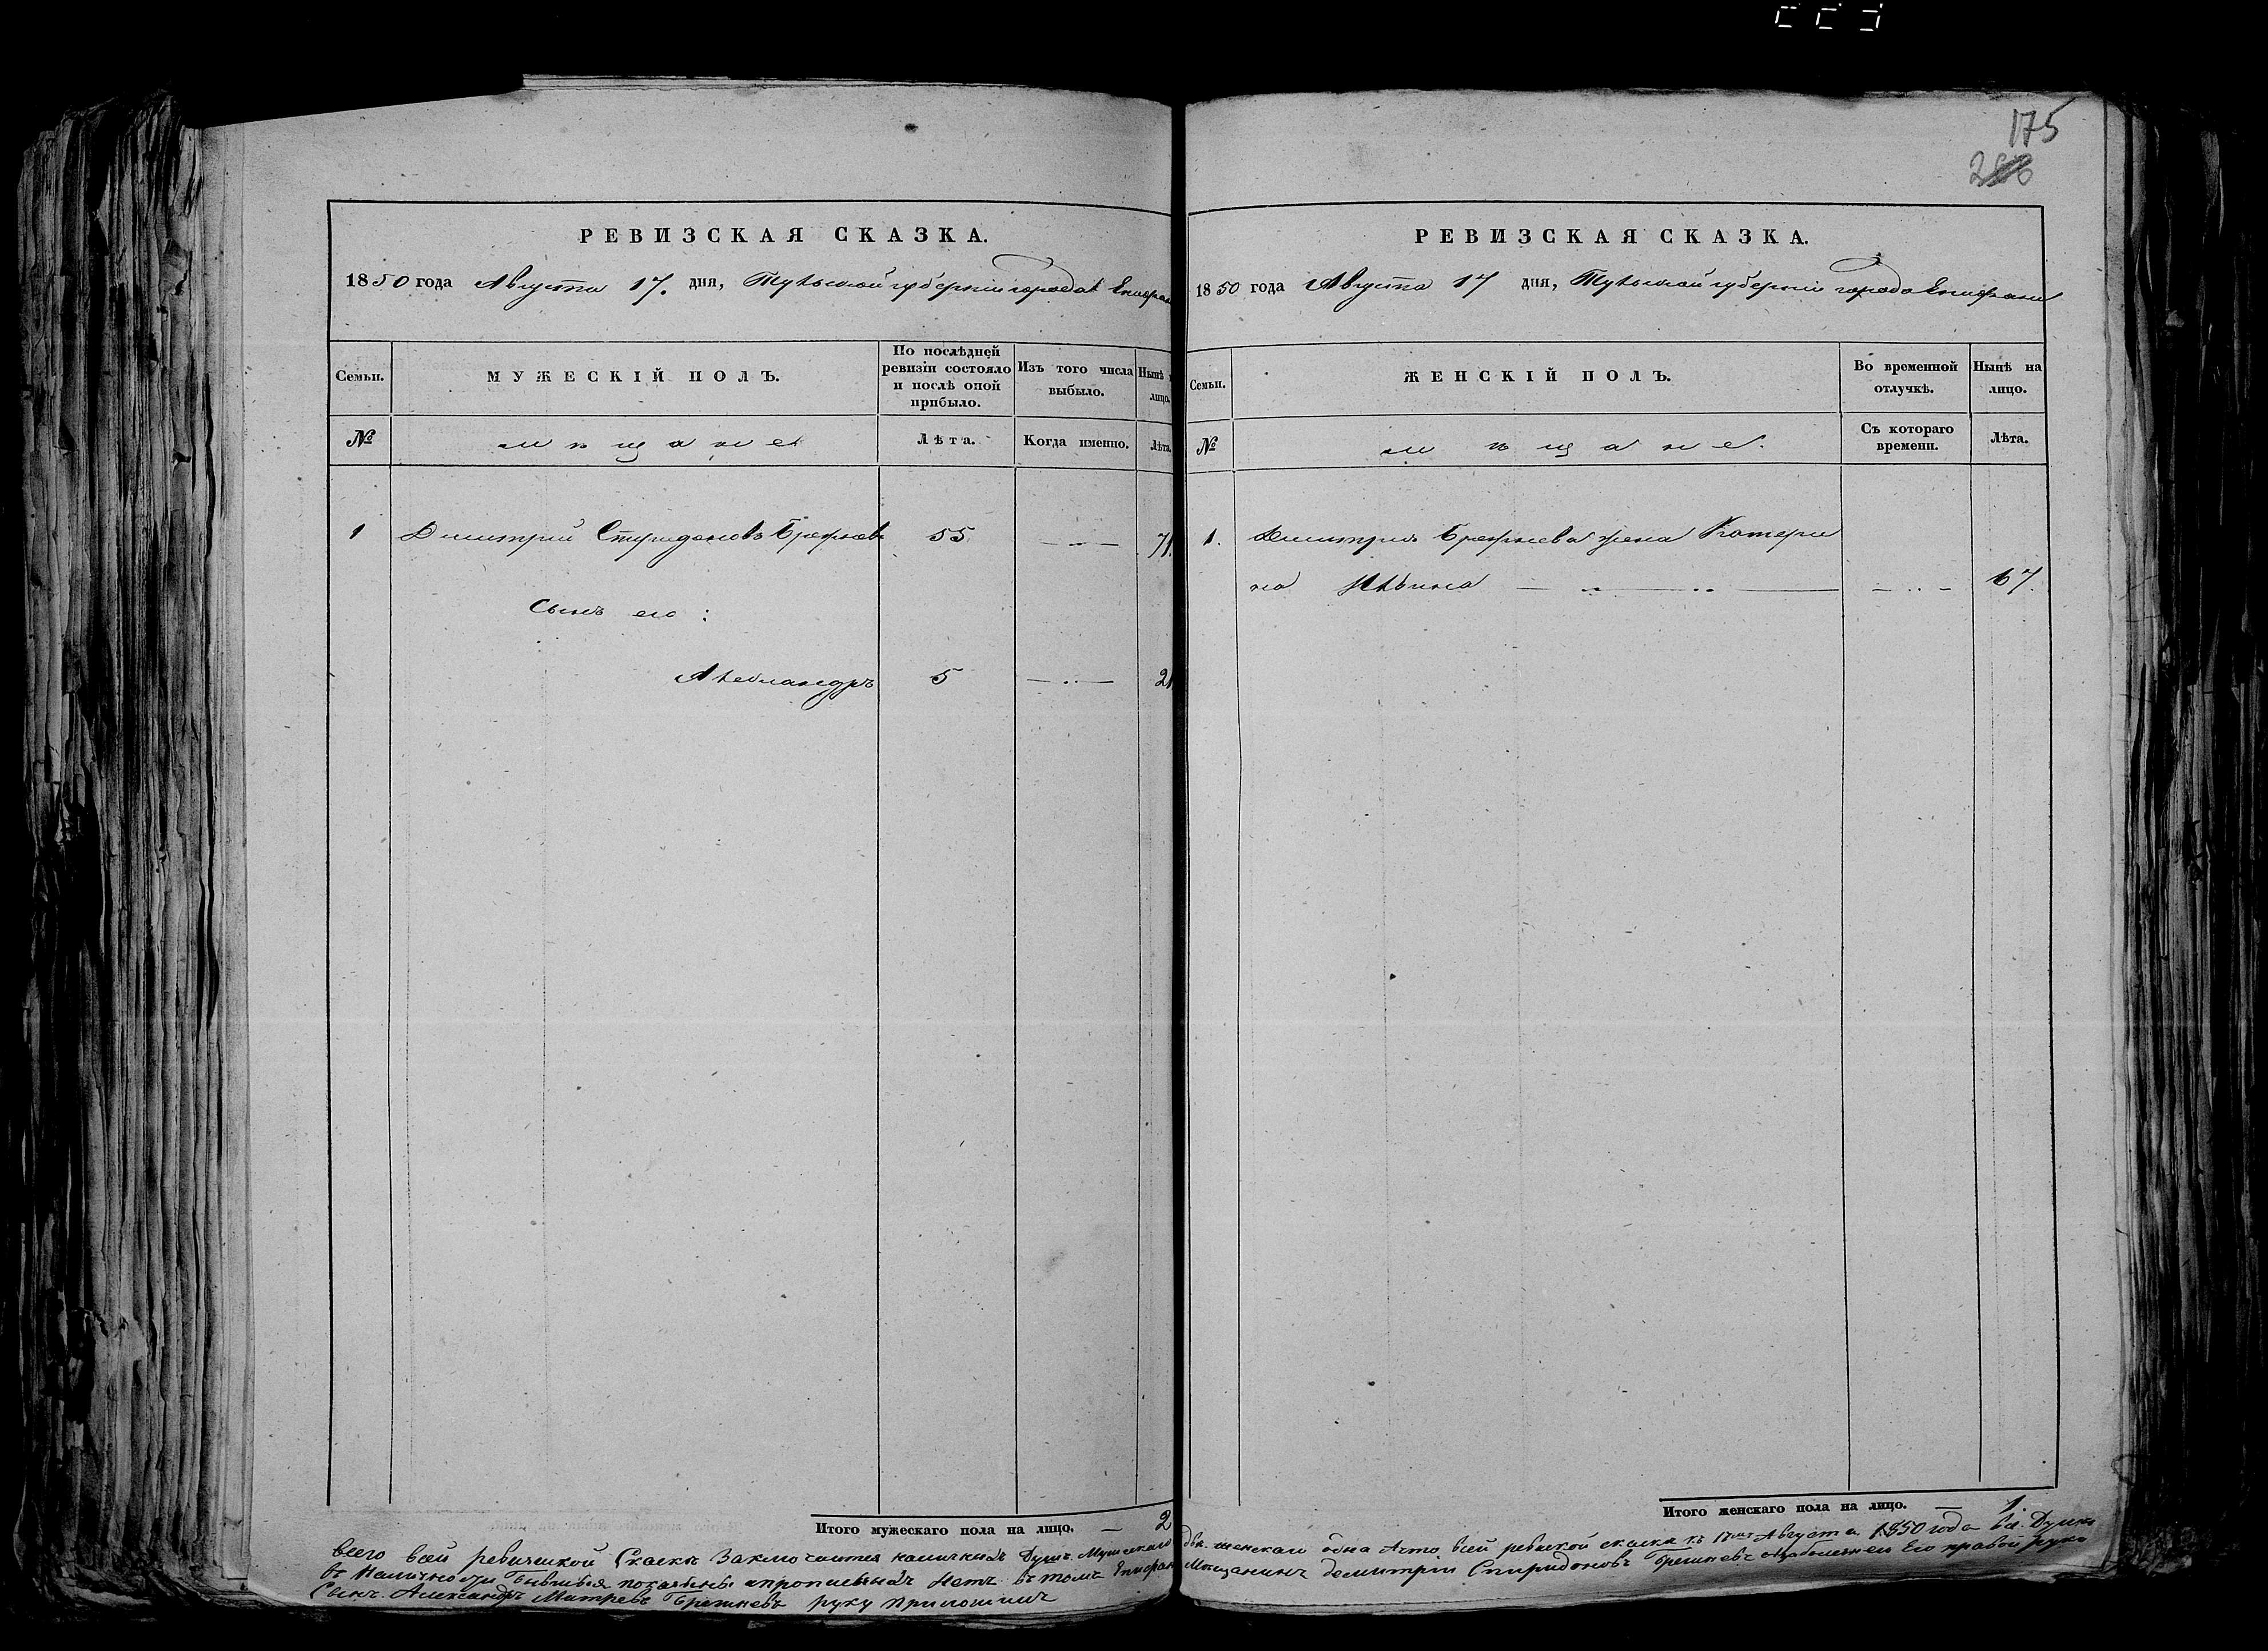 175
286
РЕВИЗСКАЯ СКАЗКА.
1850 года Августа 17. дня, Тульской губернии города Епифан
Семьи.
МУЖЕСКІЙ ПОЛЪ.
По послѣдней ревизіи состояло и послѣ оной прибыло.
Изъ того числа выбыло.
Нынѣ н лицо.
№
мѣщане
Лѣта.
Когда именно.
Лѣта.
1 Димитрий Спиридоновъ Брежневъ 55 — 71.
Сынъ его:
Александръ 5 — 21
Итого мужескаго пола на лицо. — 2
РЕВИЗСКАЯ СКАЗКА.
1850 года Августа 17 дня, Тульской губернии города Епифани
Семьи.
ЖЕНСКІЙ ПОЛЪ.
Во временной отлучкѣ.
Нынѣ на лицо.
№
мѣщане.
Съ котораго времени.
Лѣта.
1. Димитрия Брежнева жена Катери
на Ильина — — 67.
Итого женскаго пола на лицо. — 1.
всего всей ревижской Скаске Заключаитса наличныхъ Душъ Мужскаго две женскаго одна Ашто всей ревской скаска къ 17му Августа 1850 года
в Наличности Бывшыя показыны апрописныхъ Нетъ втомъ Епифан Мещанинъ Демитрій Спиридоновъ Брежневъ Его правой руки
Сынъ Александръ Митревъ Брежневъ руку приложилъ